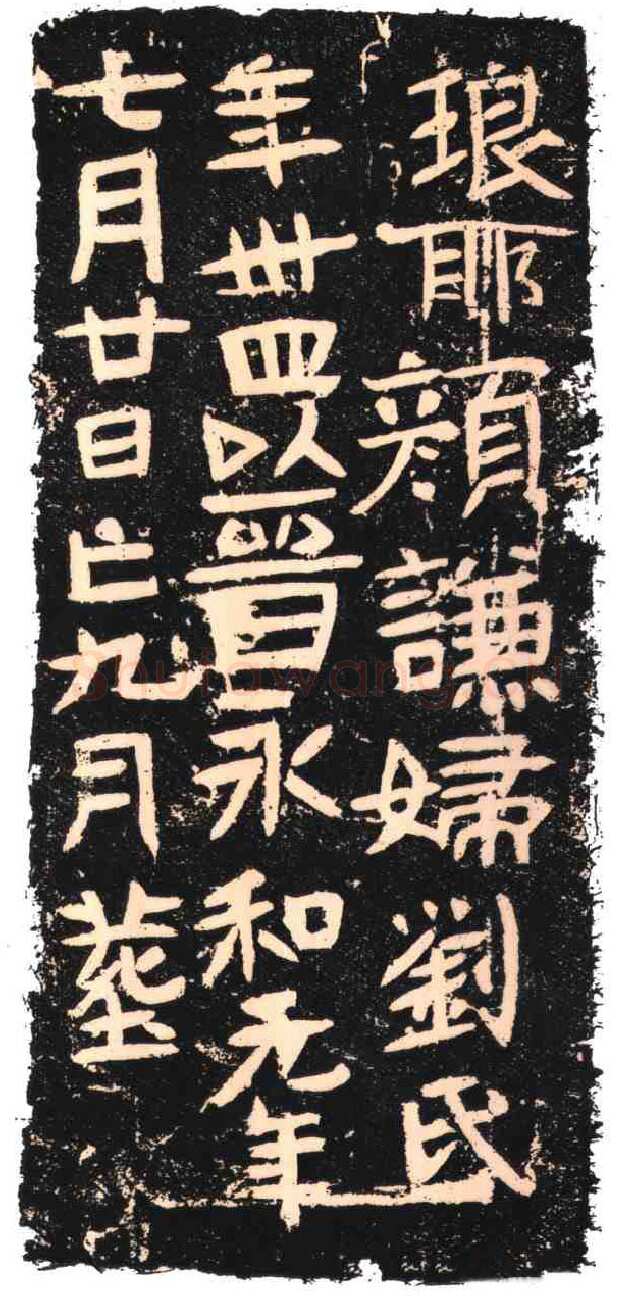 琅耶顏謙婦劉氏
年卅四以晉永和元年
七月廿日亡九月葬
shufawang.cn